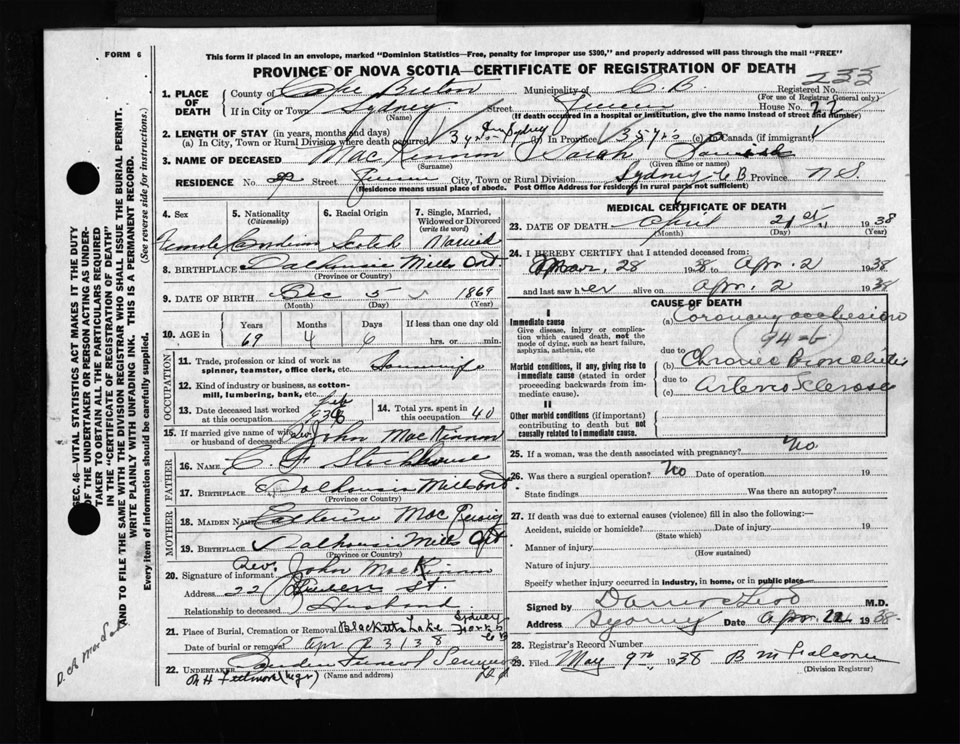 FORM 6
This form if placed in an envelope, marked "Dominion Statistics—Free, penalty for improper use $300," and properly addressed will pass through the mail "FREE"
PROVINCE OF NOVA SCOTIA—CERTIFICATE OF REGISTRATION OF DEATH
233
1. PLACE OF DEATH
County of Cape Breton Municipality of C.B. Registered No.
(For use of Registrar General only)
If in City or Town Sydney Street Queen House No. 22
(Name) (If death occurred in a hospital or institution, give the name instead of street and number)
2. LENGTH OF STAY (in years, months and days)
(a) In City, Town or Rural Division where death occurred 3 yrs Sydney (b) In Province 35 yrs (c) In Canada (if immigrant)
3. NAME OF DECEASED MacKinnon Sarah
(Surname) (Given name or names)
RESIDENCE No. 22 Street Queen City, Town or Rural Division Sydney C B Province N.S.
(Residence means usual place of abode. Post Office Address for residents in rural parts not sufficient)
4. Sex Female
5. Nationality (Citizenship) Canadian
6. Racial Origin Scotch
7. Single, Married, Widowed or Divorced (write the word) Married
8. BIRTHPLACE Dalhousie Mills Ont
(Province or Country)
9. DATE OF BIRTH Dec 5 1869
(Month) (Day) (Year)
10. AGE in Years Months Days If less than one day old
69 4 6 hrs. or min.
OCCUPATION
11. Trade, profession or kind of work as spinner, teamster, office clerk, etc. Housewife
12. Kind of industry or business, as cotton-mill, lumbering, bank, etc.
13. Date deceased last worked at this occupation Feb 1938
14. Total yrs. spent in this occupation 40
15. If married give name of wife or husband of deceased Rev John MacKinnon
FATHER
16. NAME C F Stackhouse
17. BIRTHPLACE Dalhousie Mills Ont
(Province or Country)
MOTHER
18. MAIDEN NAME Catherine Mac
19. BIRTHPLACE Dalhousie Mills Ont
(Province or Country)
20. Signature of informant Rev. John MacKinnon
Address 22 Queen St.
Relationship to deceased Husband
21. Place of Burial, Cremation or Removal Blacketts Lake Sydney Forks C B
Date of burial or removal Apr 23 / 38
22. UNDERTAKER Funeral Service Ltd
(Name and address)
(mgr)
MEDICAL CERTIFICATE OF DEATH
23. DATE OF DEATH April 21st 1938
(Month) (Day) (Year)
24. I HEREBY CERTIFY that I attended deceased from:
Mar. 28 1938 to Apr. 2 1938
and last saw her alive on Apr. 2 1938
CAUSE OF DEATH
I
Immediate cause
Give disease, injury or complication which caused death, not the mode of dying, such as heart failure, asphyxia, asthenia, etc
(a) Coronary occlusion
94-b
due to
Morbid conditions, if any, giving rise to immediate cause (stated in order proceeding backwards from immediate cause)
(b) Chronic Bronchitis
due to
(c) Arterio Sclerosis
II
Other morbid conditions (if important) contributing to death but not causally related to immediate cause.
25. If a woman, was the death associated with pregnancy? No
26. Was there a surgical operation? No Date of operation 19
State findings Was there an autopsy?
27. If death was due to external causes (violence) fill in also the following:—
Accident, suicide or homicide? Date of injury 19
(State which)
Manner of injury
(How sustained)
Nature of injury
Specify whether injury occurred in industry, in home, or in public place
Signed by M.D.
Address Sydney Date Apr 22 1938
28. Registrar's Record Number
29. Filed May 9th 1938 B M Falconer
(Division Registrar)
SEC. 46—VITAL STATISTICS ACT MAKES IT THE DUTY
OF THE UNDERTAKER OR PERSON ACTING AS UNDERTAKER TO OBTAIN ALL THE PARTICULARS REQUIRED
IN THE "CERTIFICATE OF REGISTRATION OF DEATH"
AND TO FILE THE SAME WITH THE DIVISION REGISTRAR WHO SHALL ISSUE THE BURIAL PERMIT.
WRITE PLAINLY WITH UNFADING INK. THIS IS A PERMANENT RECORD.
Every item of information should be carefully supplied. (See reverse side for instructions.)